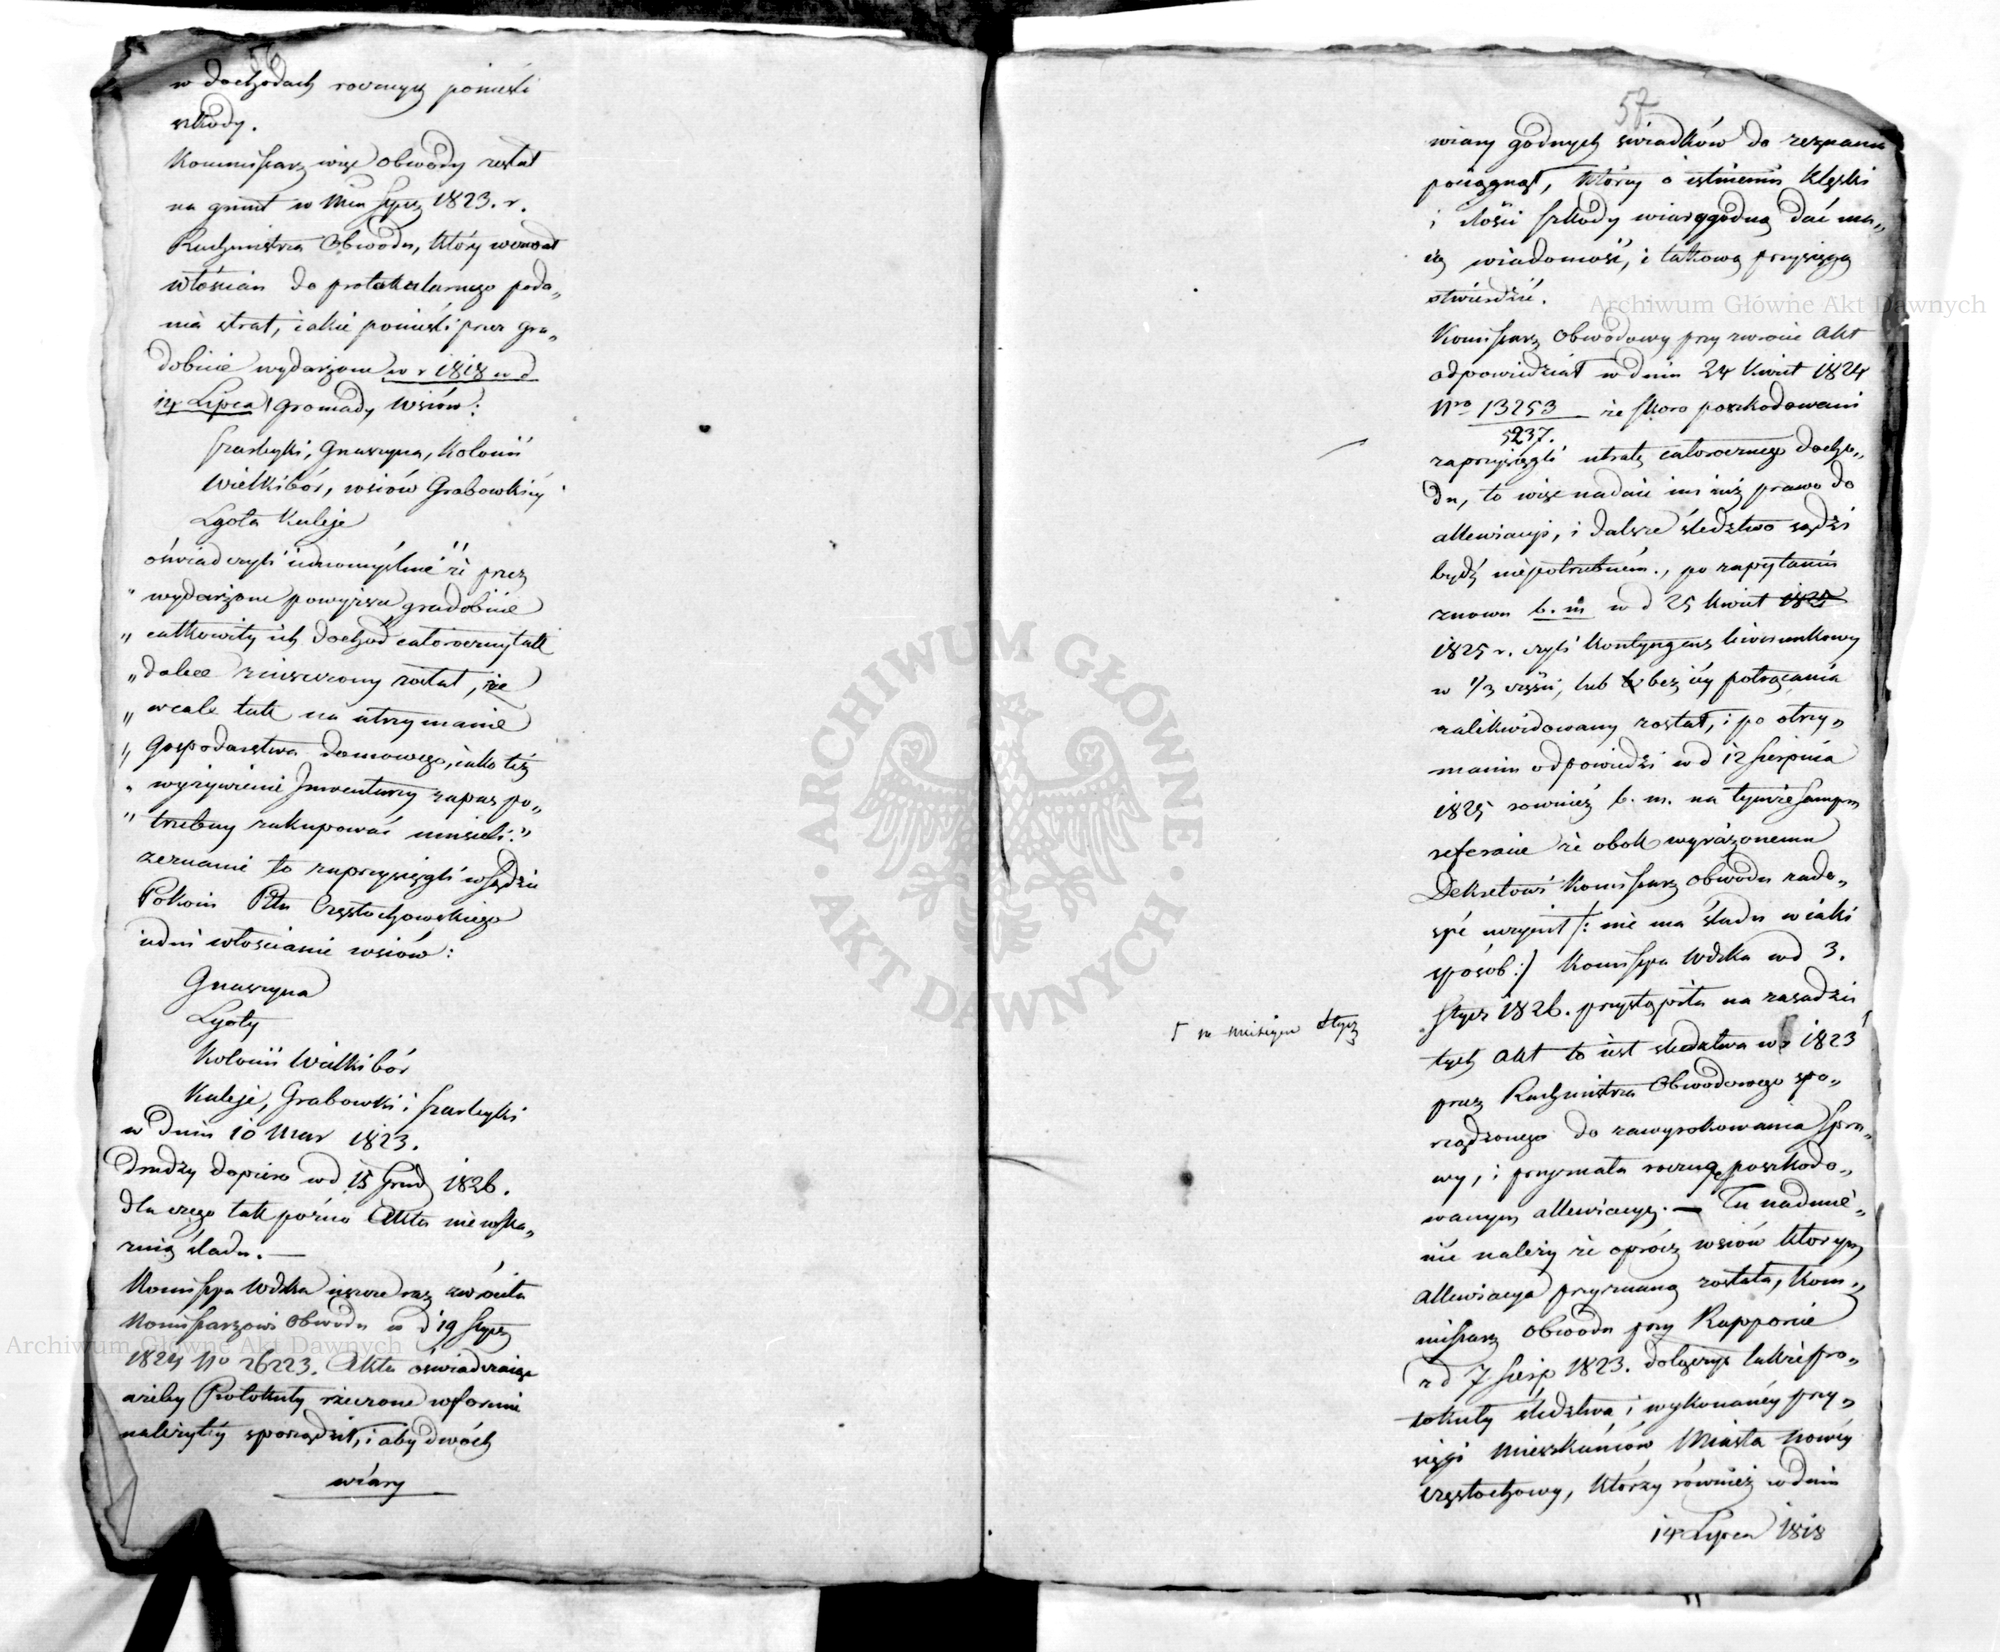 56
w dochodach rocznych ponieśli
szkody.
Kommissarz więc Obwodu zesłał
na grunt w Mcu Stycz 1823. r.
Rachmistrza Obwodu, który wezwał
włościan do protokularnego poda„
nia strat, iakie ponieśli przez gra„
dobicie wydarzone w r 1818 w d
14 Lipca gromady wsiów:
Szarleyki, Gnaszyna, Kolonii
Wielkibór, wsiów Grabowki i
Lgota Kuleje
oświadczyli iednomyślnie "że przez
" wydarzone powyższe gradobicie
„ całkowity ich dochód całoroczny tak
„ dalece zniszczony został, że
„ wcale tak na utrzymanie
„ Gospodarstwa domowego, iako też
„ wyżywienie Inwentarzy zapas po„
„ trzebny zakupować musieli."
zeznanie to zaprzysięgli w Sądzie
Pokoiu Pttu Częstochowskiego
iedni włościanie wsiów:
Gnaszyna
Lgoty
Kolonii Wielkibór
Kuleje, Grabowki i Szarleyki
w dniu 10 Mar 1823.
Drudzy dopiero w d 15 Grud 1826.
dla czego tak poźno Akta nie wska„
zuią śladu. —
Komissya Wdzka ieszcze raz zwróciła
Komissarzowi Obwodu w d 19 Stycz
1824 No 26223. Akta oświadczaiąc
ażeby Protokuły rzeczone w formie
należytéy sporządził, i aby dwóch
wiary
57
wiary godnych świadków do zeznania
pociągnął, którzy o istnieniu klęski
i ilości szkody wiarygodną dać ma„
ią wiadomość, i takową przysięgą
stwierdzić.
Komissarz Obwodowy przy zwrocie Akt
odpowiedział w dniu 24 Kwiet 1824
Nro 13253
5237.
że skoro poszkodowani
zaprzysięgli utratę całorocznego docho„
du, to więc nadaie im iuż prawo do
allewiacyi, i dalsze śledztwo sądzi
bydź niepotrzebném., po zapytaniu
znowu b. m w d 25 Kwiet 1825
1825 r. czyli Kontyngens liwerunkowy
w 1/3 części, lub bez iéy potrącania
zalikwidowany został, i po otrzy„
maniu odpowiedzi w d 12 Sierpnia
1825 również b. m. na tymże samym
referacie że obok wyrażonemu
Dekretowi Komissarz Obwodu zado„
syć uczynił /: nie ma śladu w iaki
sposób :/ Komissya Wdzka w d 3.
Stycz 1826. przystąpiła na zasadzie
tych Akt to iest śledztwa w r 1823
Γ w miesiącu Stycz
przez Rachmistrza Obwodowego spo„
rządzonego do zawyrokowania Spra„
wy, i przyznała roczną poszkodo„
wanym allewiacyę. — Tu nadmie„
nić należy że oprócz wsiów którym
allewiacya przyznaną została, Kom„
missarz Obwodu przy Rapporcie
z d 7 Sierp 1823. dołączył także pro„
tokuły śledztwa i wykonanéy przy„
sięgi Mieszkańców Miasta Nowéy
Częstochowy, którzy również w dniu
14 Lipca 1818
Archiwum Główne Akt Dawnych
Archiwum Główne Akt Dawnych
ARCHIWUM GŁÓWNE
AKT DAWNYCH